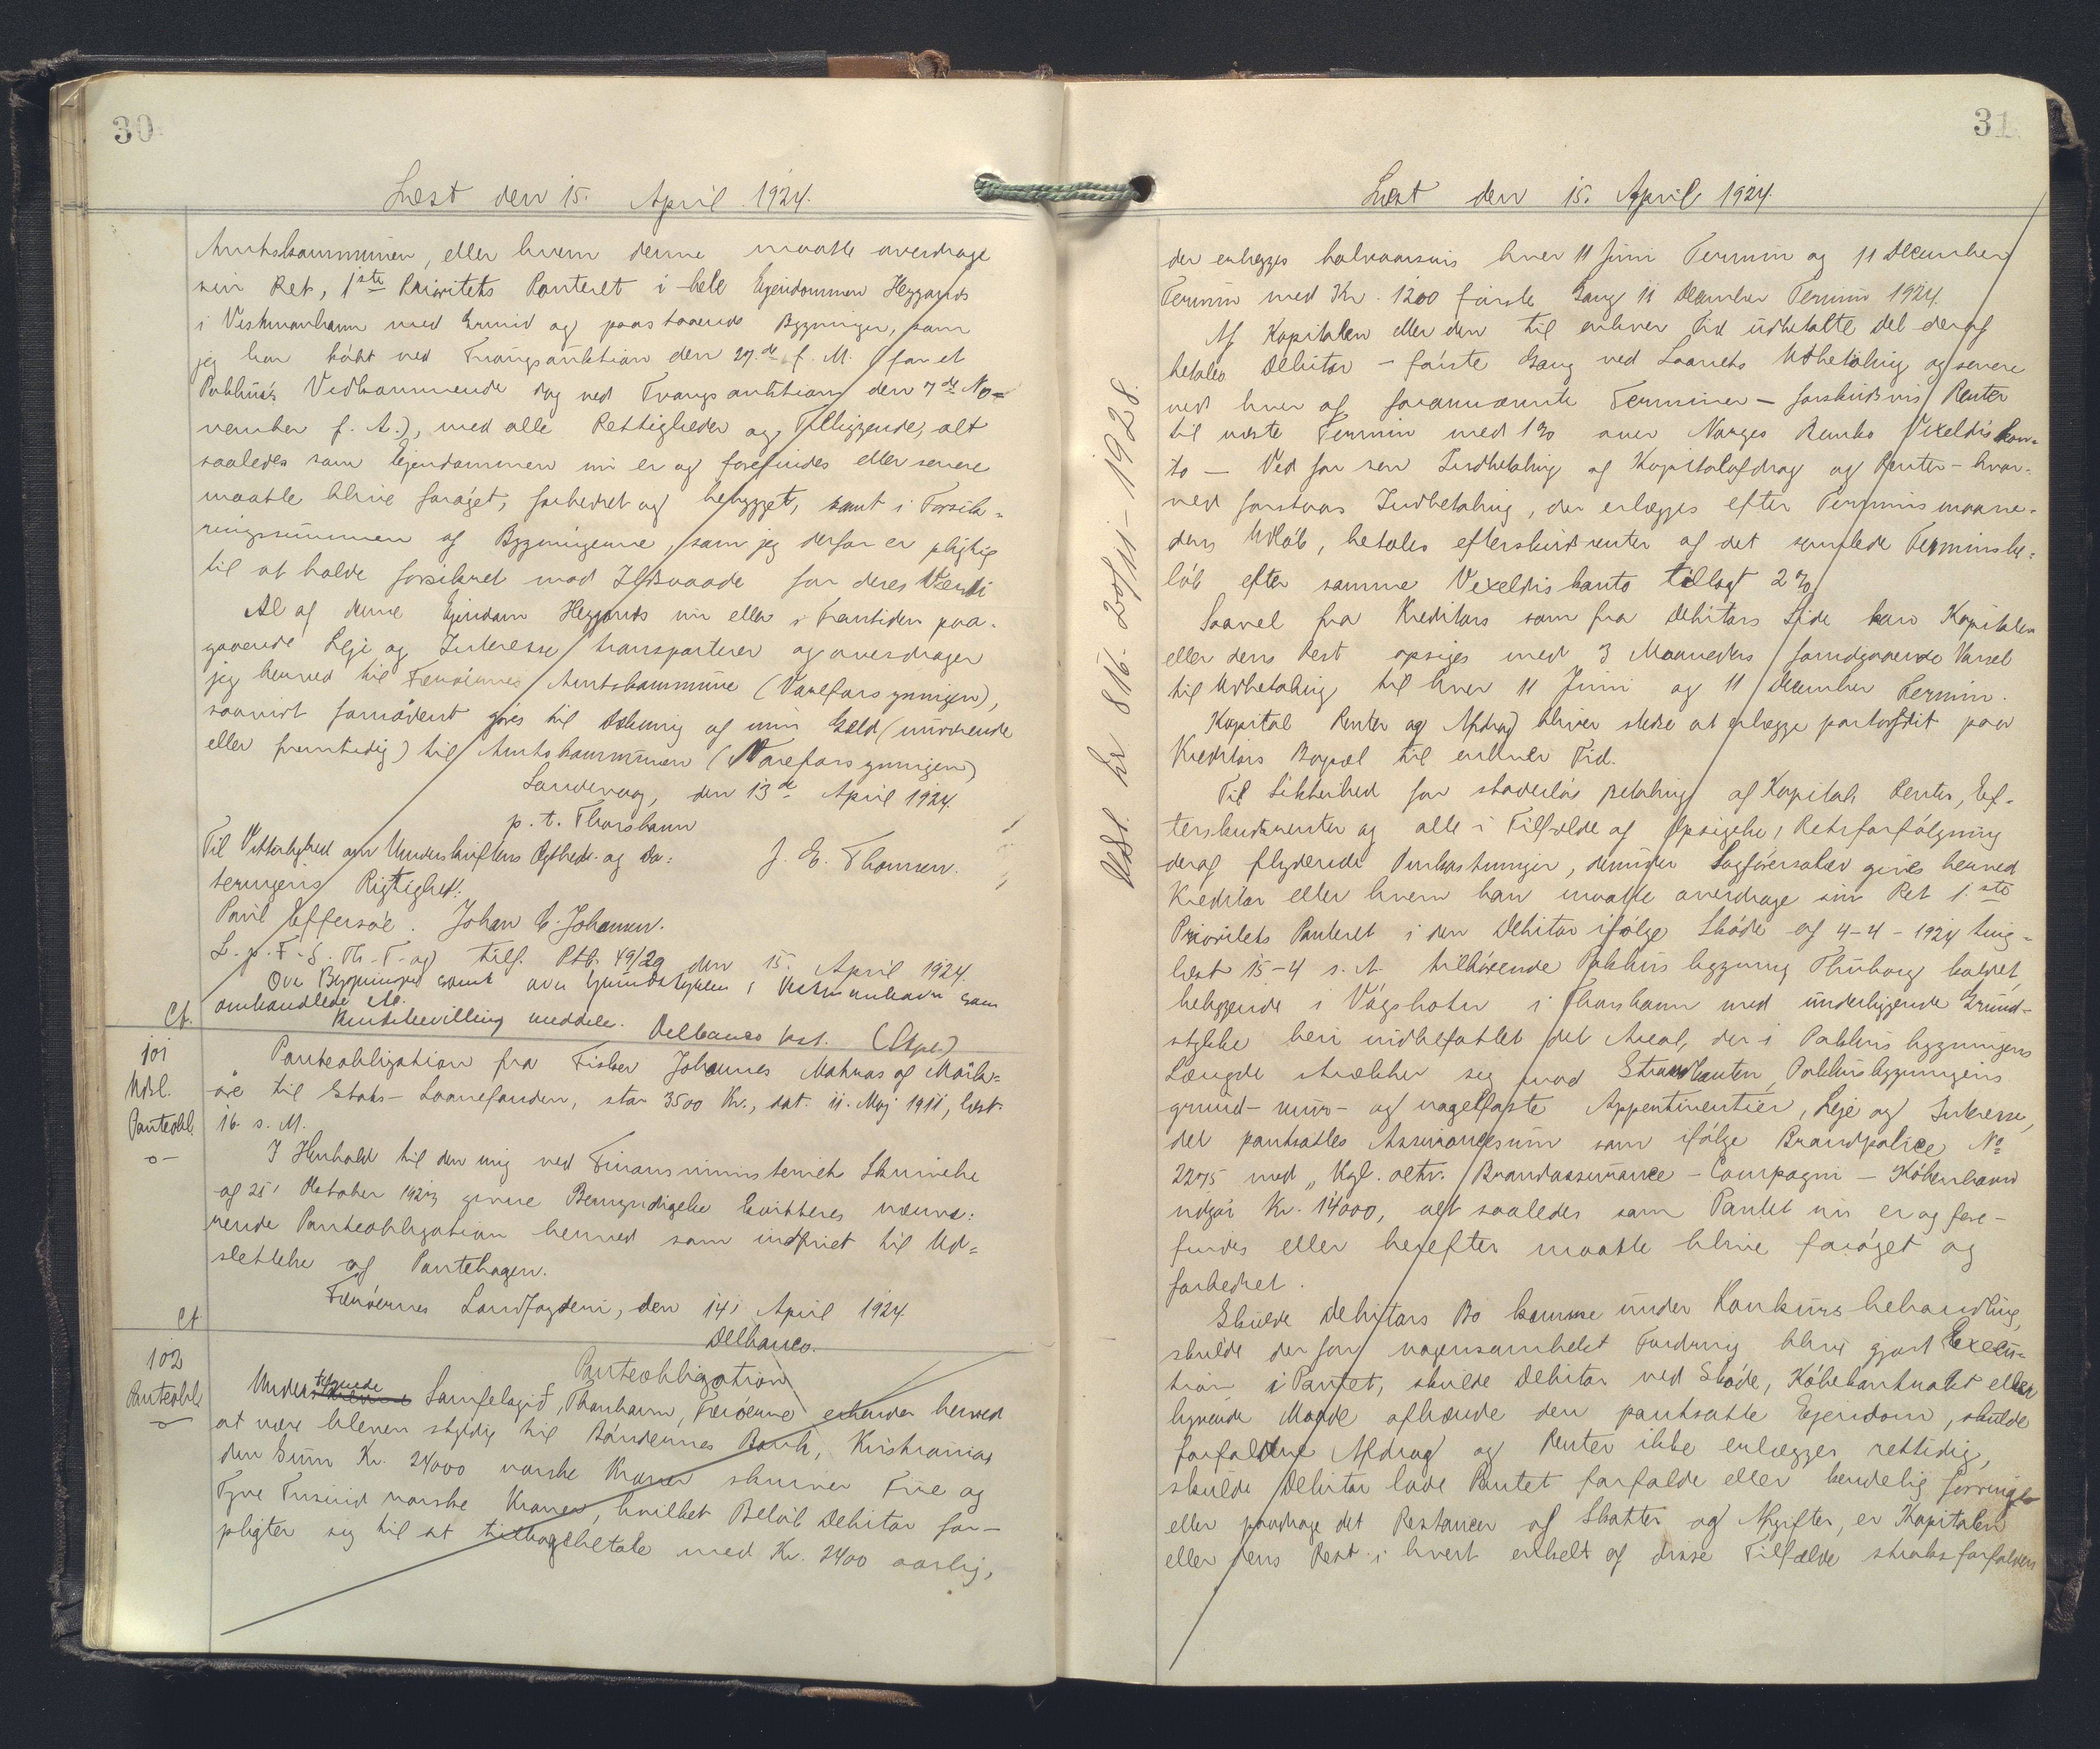 30
Læst den 15. April 1924.
Amtskommunen, eller hvem denne maatte overdrage
sin Ret, 1ste Prioritets Panteret i hele Ejendommen Heygards
i Vestmanhavn med Grund og paastaaende Bygninger, som
jeg har købt ved Tvangsauktion den 27.de f. M. (for et
Pakhus's Vedkommende dog ved Tvangsauktion den 7de No=
vember f. A.), med alle Rettigheder og Tilliggende, alt
saaledes som Ejendommen nu er og forefindes eller senere
maatte blive forøget, forbedret og bebygget, samt i Forsik=
ringssummen af Bygningerne, som jeg derfor er pligtig
til at holde forsikret mod Ildsvaade for deres Værdi
Al af denne Ejendom Heygards nu eller i Fremtiden paa-
gaaende Leje og Interesse transporterer og overdrager
jeg herved til Færøernes Amtskommune (Vareforsyningen),
saavidt fornødent gøres til Dækning af min Gæld (nuværende
eller fremtidig) til Amtskommunen (Vareforsyningen)
Sandevaag, den 13de April 1924.
p. t. Thorshavn
Til Vitterlighed om Underskriftens Ægthed og Da:
J. E. Thomsen.
teringens Rigtighed:
Poul Effersøe. Johan C. Johansen.
L. p. F. S. Th. T. og tilf. Ptb. 49/29 den 15. April 1924.
Ova Bygninger samt over Grundstykker i Vestmanhavn som
omhandlede etc.
Ct.
Kreditbevilling meddele. Delbanco kst.
101
Udsl.
Panteobl.
Panteobligation fra Fisker Johannes Matras af Mørk=
øre til Stats-Laanefonden, stor 3500 Kr., dat. 11. Maj 1911, læst
16. s. M.
I Henhold til den mig ved Finansministeriets Skrivelse
af 25' Oktober 1923 givne Bemyndigelse kvitteres nærvæ:
rende Panteobligation herved som indfriet til Ud=
slettelse af Pantebogen.
Færøernes Landfogderi, den 14' April 1924.
Ct.
Delbanco.
102
Panteobl.
Panteobligation
Undertegnede Samfelagið, Thorshavn, Færöerne erkender herved
at være bleven skyldig til Bøndernes Bank, Kristiania,
den Sum Kr. 24000 norske Kroner skriver Fire og
Tyve Tusind norske Kroner, hvilket Beløb Debitor for-
pligter sig til at tilbagebetale med Kr. 2400 aarlig,
31
Læst den 15. April 1924.
der erlægges halvaarsvis hver 11 Juni Termin og 11 December
Termin med Kr. 1200 første Gang 11 December Termin 1924.
Af Kapitalen eller den til enhver Tid udbetalte del deraf
betales Debitor - første Gang ved Laanets Udbetaling og senere
ved hver af forannævnte Terminer - forskudsvis Renter
til næste Termin med 1% over Norges Banks Vexeldiskon-
to - Ved for sen Indbetaling af Kapitalafdrag og Renter - hvor-
ved forstaas Indbetaling, der erlægges efter Terminsmaane-
dens Udløb, betales efterskudsrenter af det samlede Terminsbe-
løb efter samme Vexeldiskonto tillagt 2%
Saavel fra Kreditors som fra Debitors Side kan Kapitalen
eller dens Rest opsiges med 3 Maaneders forudgaaende Varsel
til Udbetaling til hver 11 Juni og 11 December Termin.
Kapital Renter og Afdrag bliver stedse at erlægge portofrit paa
Kreditors Bopæl til enhver Tid.
Til Sikkerhed for skadesløs Betaling af Kapital, Renter, Ef-
terskudsrenter og alle i Tilfælde af Opsigelse, Retsforfølgning
deraf flydende Omkostninger, derunder Sagførersalær gives herved
Kreditor eller hvem han maatte overdrage sin Ret 1.ste
Prioritets Panteret i den Debitor ifølge Skøde af 4-4-1924 ting-
læst 15-4 s. A. tilhørende Pakhusbygning Thuborg kaldet,
beliggende i Vágsbotn i Thorshavn med underliggende Grund-
stykke heri indbefattet det Areal, der i Pakhusbygningens
Længde strækker sig mod Strandkanten, Pakhusbygningens
grund- mur- og nagelfaste Appertinentier, Leje og Interesse,
det pantsattes Assurancesum som ifølge Brandpolice No
2275 med "Kgl. octr. Brandassurance-Compagni - København
udgør Kr. 14000, alt saaledes som Pantet nu er og fore-
findes eller herefter maatte blive forøget og
forbedret.
Skulde Debitors Bo komme under Konkursbehandling,
skulde der for nogensomhelst Fordring blive gjort Execu-
tion i Pantet, skulde Debitor ved Skøde, Købekontrakt eller
lignende Maade afhænde den pantsatte Ejendom, skulde
forfaldne Afdrag og Renter ikke erlægges rettidig,
skulde Debitor lade Pantet forfalde eller kendelig forringe
eller paadrage det Restancer af Skatter og Afgifter, er Kapitalen
eller dens Rest i hvert enkelt af disse Tilfælde straks forfalden
Udsl. Nr 816. 20/11-1928.